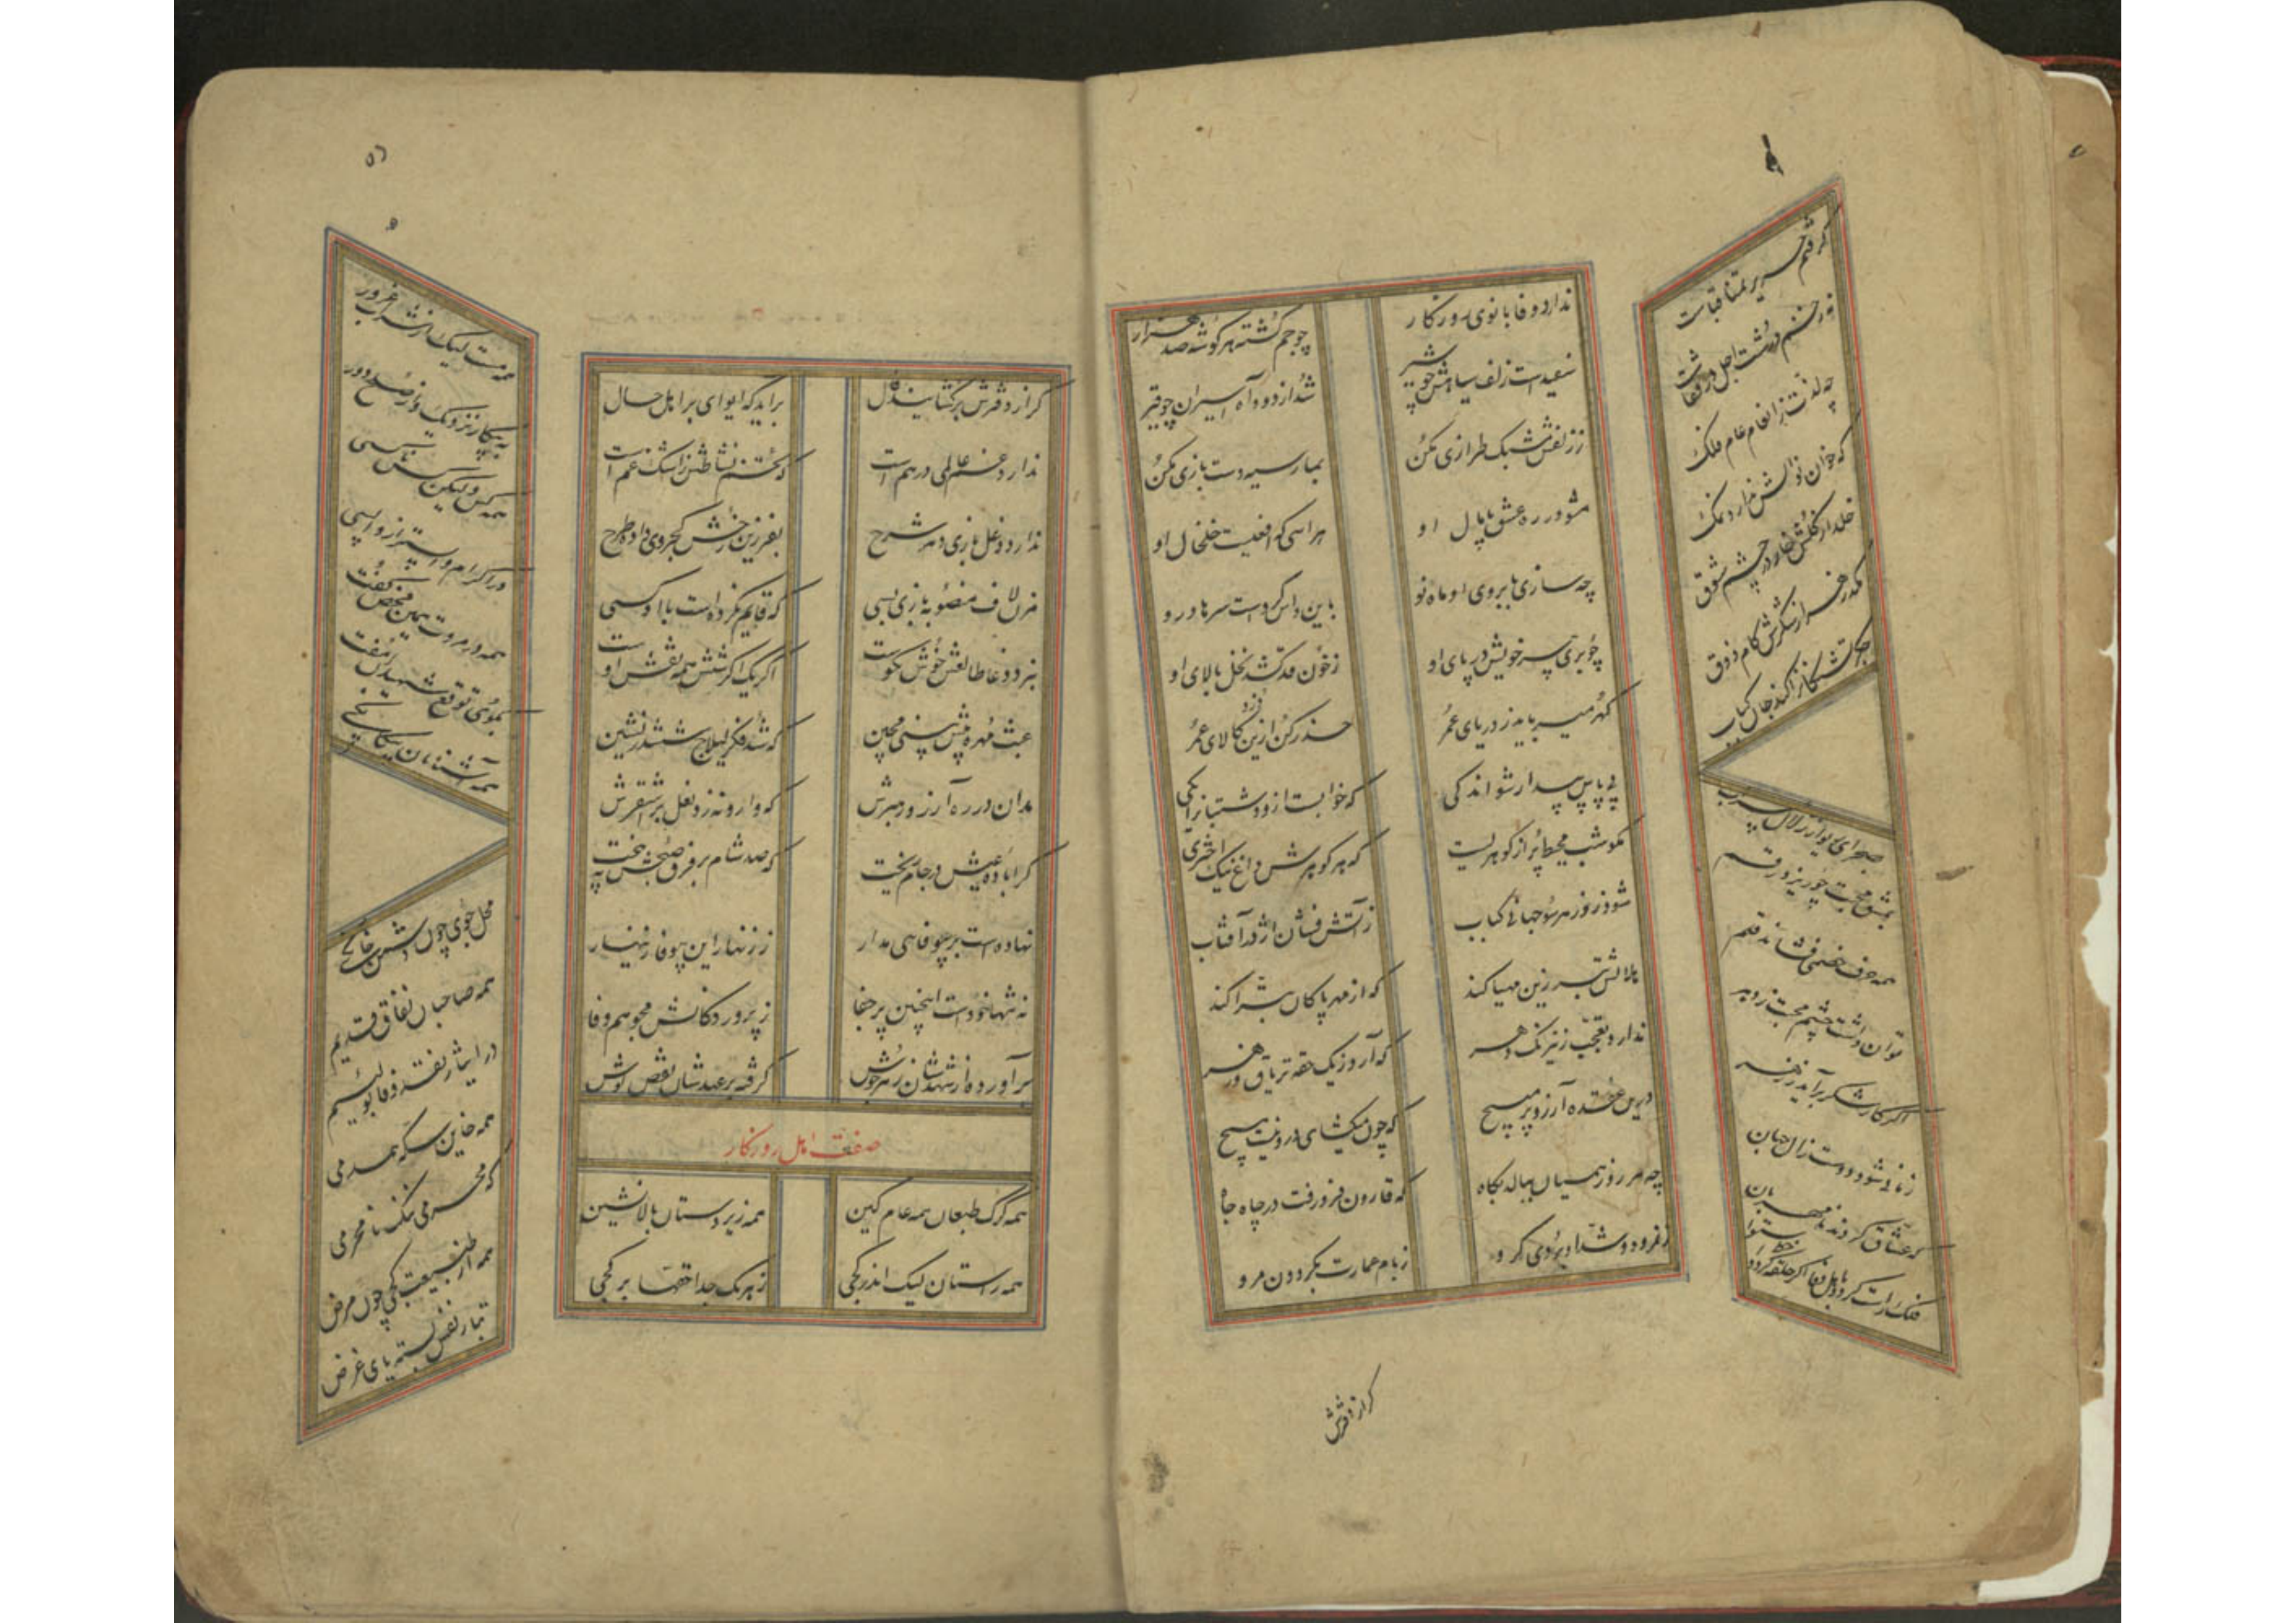 ندارد وفا بانوی روزگار
چو جم گشته هر گوشه صد هزار
سفیدست زلف سیاهش چو شیر
شد از دود آه اسیران چو قیر
ز زلفش مشبک طرازی مکن
بمار سیه دست بازی مکن
مشو در ره عشق پامال او
هراسی که افعیست خلخال او
چه سازی بابروی او ماه نو
باین داس کردست سرها درو
چو بری سر خویش در پای او
ز خون قد کشد نخل بالای او
گهر میرباید ز دریای عمر
حذر کن ازین دزد کالای عمر
پی پاس بیدار شو اندکی
که خوابست ازو دشتبانرا یکی
مگو شب محیط پر از گوهریست
که هر گوهرش داغ نیک اختری
شود روز هر سو جهانی کباب
ز آتش فشان اژدر آفتاب
هلالش تبرزین مهیا کند
که از مهر پاکان تبرا کند
ندارد تعجب ز نیرنگ دهر
که آرد ز یک حقه تریاق و زهر
درین عقده آرزو بر مسیح
که چون میگشای درونیست هیچ
چه هر روز همیان ببالد بگاه
که قارون فرو رفت در چاه جاه
ز فرود و شداد بردی گرو
ز بام عمارت بگردون مرو
گرفتم حریر تمنا قباست
نه زخم درشت اجل در قفاست
چه لذت ز انعام عام فلک
که خوان نوالش ندارد نمک
خلد از گلش خار در چشم شوق
کند زهر از شکرش کام ذوق
جگر تشنگانرا کند جان کباب
بصحرای یواز زلال سراب
بمشق محبت چو ریزد رقم
همه حرف خصمی فشاند قلم
توان داشت چشم محبت ز وبه
اگر کار شکر برآید ز زهر
زمانی شود دوست زال جهان
که عشاق گردند نامهربان
فلک راست گردد باهل وفا
اگر حلقه گردد خط استوا
گر از دفترش
گر از دفترش برگشایند دل
برآید که ایوای بر اهل حال
ندارد غم عالمی درهم است
که تخم نشاطش ز اشک غم است
ندارد دغل بازی دهر شرح
بفرزین رخش کجروی داده طرح
مزن لاف منصوبه بازی بسی
که قایم نکردست با او کسی
بنرد دغا طالعش خوش نکوست
اگر یک اگر شش همه نقش اوست
عبث مهره پیش سپنجی مچین
که شد فکر لیلاج ششدر نشین
بدان در ره آرزو رهبرش
که وارونه زد نعل بر اشقرش
کرا باده عیش در جام ریخت
که صد شام بر فرق صبحش نه بیخت
نهادست بر بیوفایی مدار
ز زنهار این بیوفا زینهار
نه تنها خودست اینچنین پر جفا
ز پروردگانش مجو هم وفا
برآورده از شهدشان زهر جوش
گرفته بر عهدشان نقص نوش
صفت اهل روزگار
همه گرگ طبعان همه عام کین
همه زیر دستان بالا نشین
همه راستان لیک اندر کجی
ز هر یک جدا حقها بر کجی
همه مست لیک از شراب غرور
به پیکار نزدیک و از صلح دور
همه کس ولیکن کس ناکسی
در اکرام واپستر از واپسی
همه در مروت همین محض گفت
بموئی توقع شهیدان مفت
همه آشنایان بیگانگی
محل جوی چون دشمن خانگی
همه صاحبان نفاق قدیم
در ایثار نقد وفا بو لئیم
همه خاین سکه همدمی
که محرمی ننگ نامحرمی
همه از طبیعت کجی چون مرض
بتار نفس بسته پای غرض